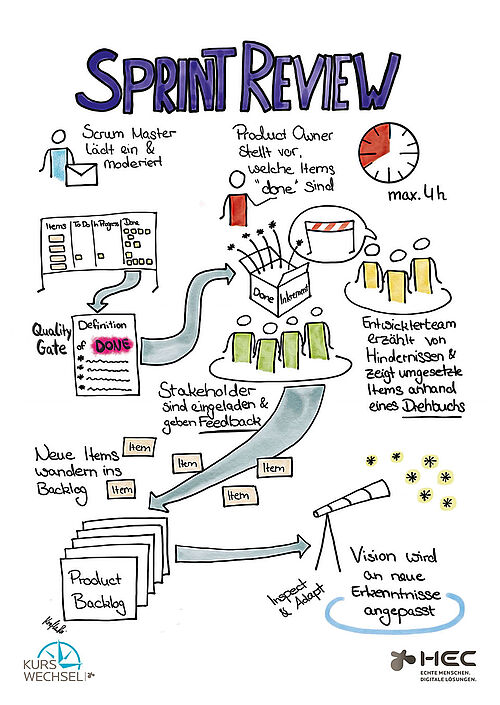 SPRINT REVIEW
Scrum Master
lädt ein &
moderiert
Product Owner
stellt vor,
welche Items
"done" sind
max. 4h
Items
To Do
In Progress
Done
Quality
Gate
Definition
of DONE
Done
Inkrement
Stakeholder
sind eingeladen &
geben Feedback
Entwicklerteam
erzählt von
Hindernissen &
zeigt umgesetzte
Items anhand
eines Drehbuchs
Neue Items
wandern ins
Backlog
Item
Item
Item
Item
Item
Product
Backlog
Inspect
& Adapt
Vision wird
an neue
Erkenntnisse
angepasst
KURS
WECHSEL
HEC
ECHTE MENSCHEN.
DIGITALE LÖSUNGEN.